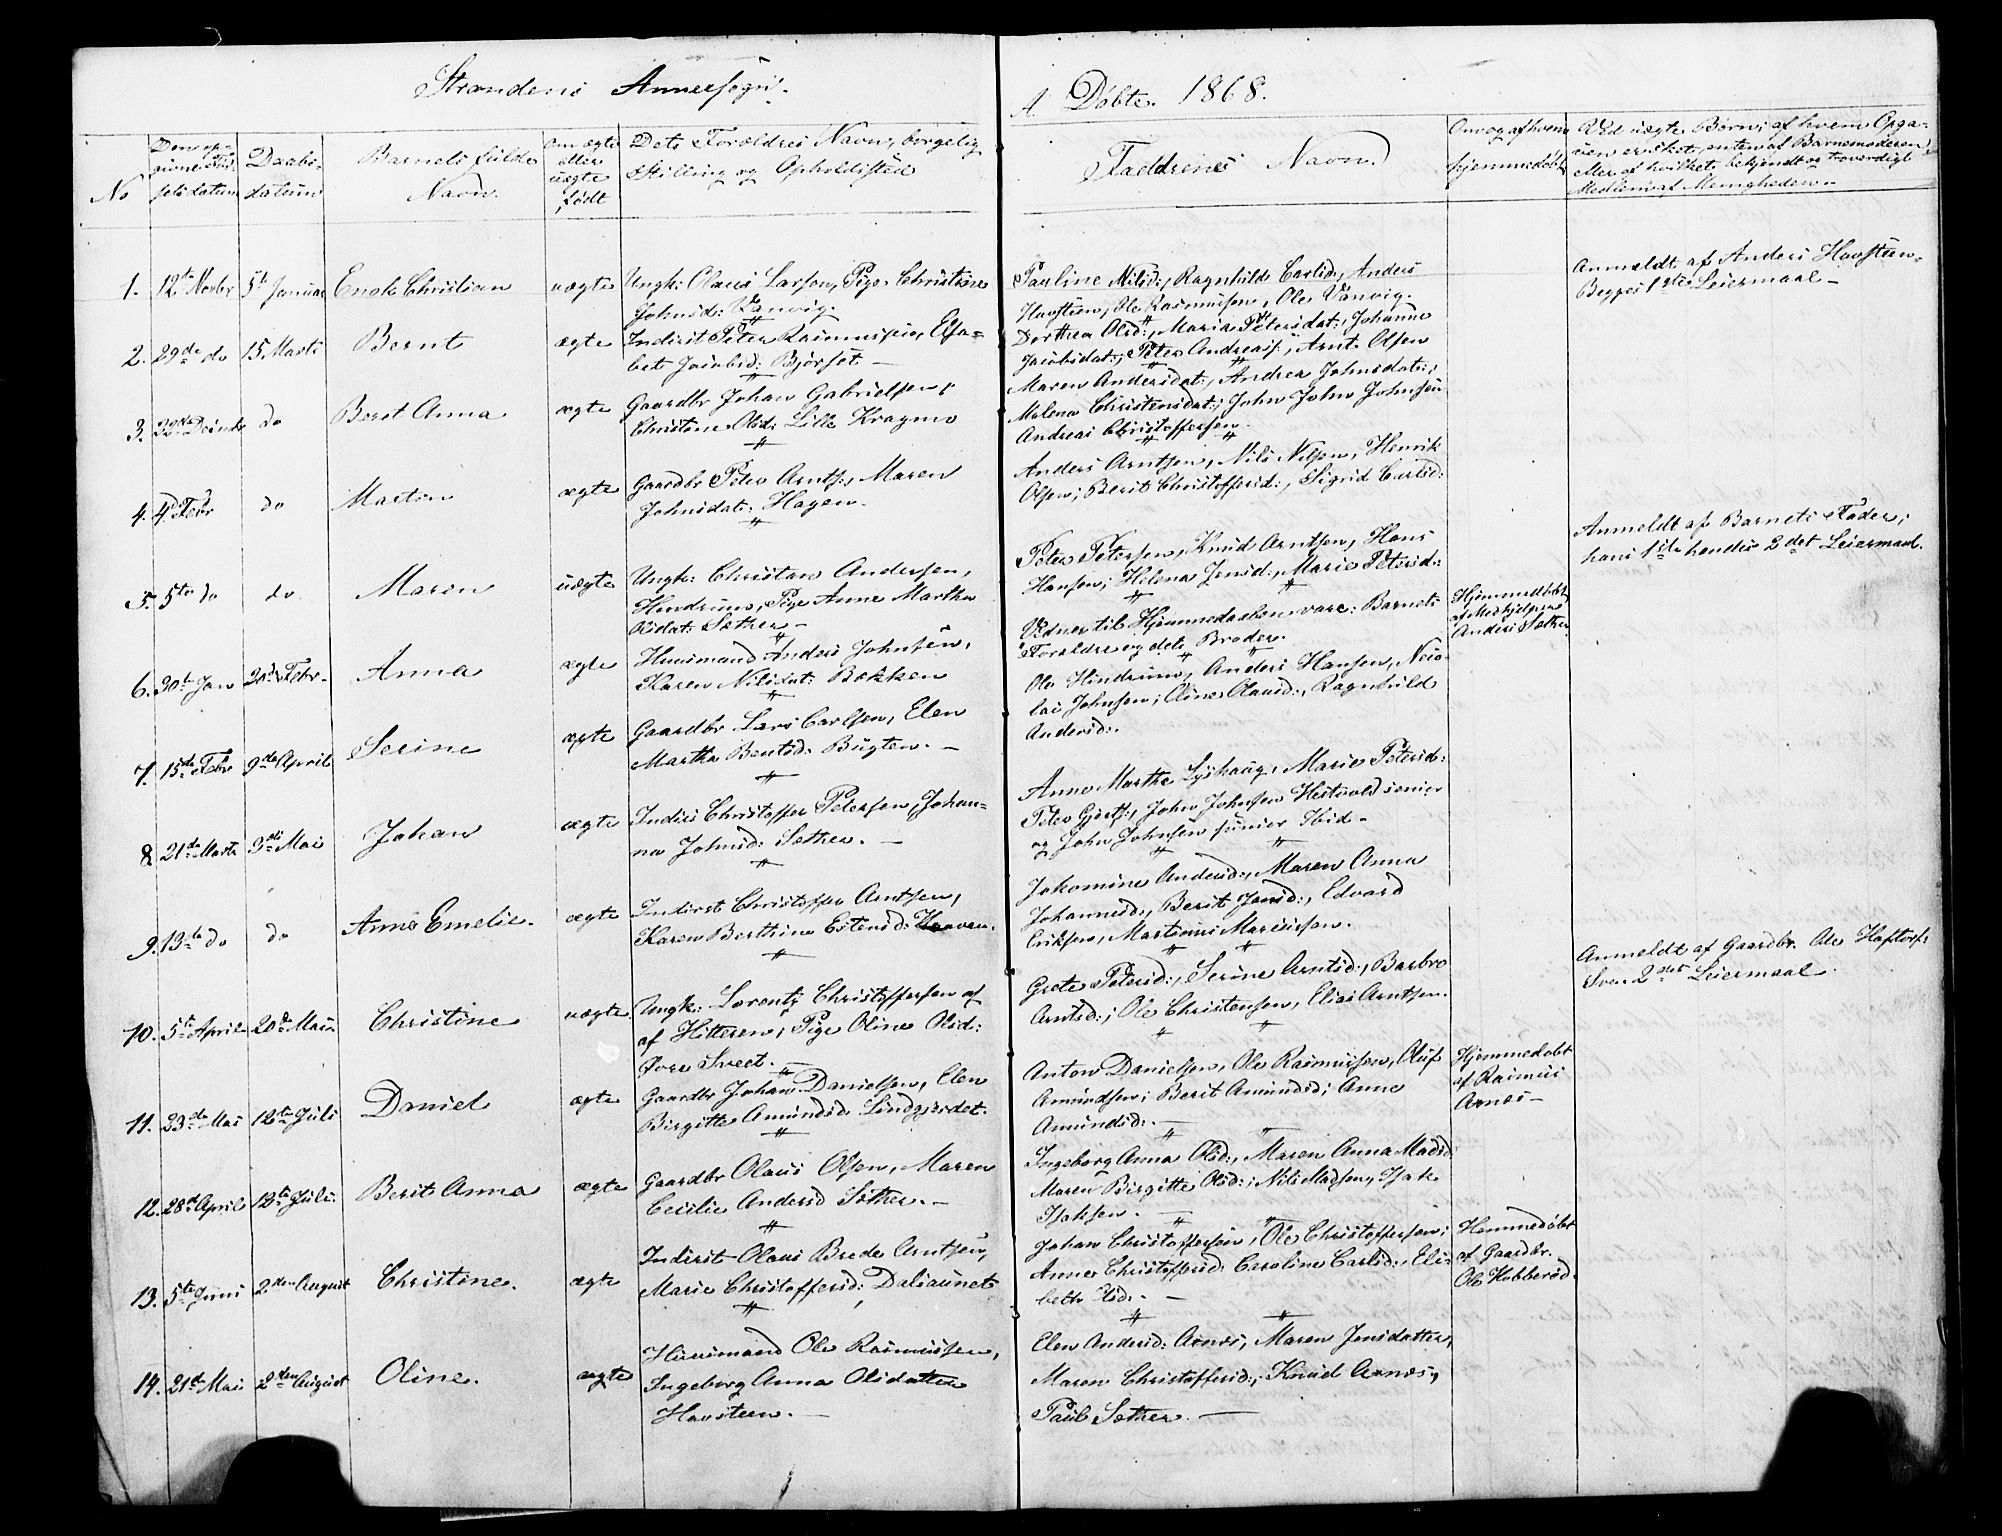 Strandens Annexsogn.
A. Døbte. 1868.
No
Den opgivne Fødselsdatum
Daabsdatum
Barnets fulde Navn.
Om ægte eller uægte født
Dets Forældres Navn, borgelig Stilling og Opholdssted
Faddrenes Navn.
Om og af hvem hjemmedøbt
Ved uægte Børn; af hvem Opgaven er skeet, enten af Barnemoderen eller af hvilket bekjendt og troværdigt Medlem af Menigheden.
1. 12te Novbr 5te Januar Enok Christian uægte
Ungk: Olaus Larsen, Pige Christine
Johnsd: Vanvig.
Pauline Nilsd:, Ragnhild Carlsd:, Anders
Havsteen, Ole Rasmussen, Ole Vanvig.
Anmeldt af Anders Havsteen.
Begges 1ste Leiermaal –
2. 29de do 15 Marts Bernt ægte
Inderst Peter Rasmussen, Elsa-
bet Jacobsd: Bjørset –
Dorthea Olsd:, Maria Petersdat:, Johanna
Jacobsdat:, Peter Andreas:, Arnt Olsen
3. Decmbr do Berit Anna ægte
Gaardbr Johan Gabrielsen,
Christine Olsd: Lille Kragmo
Maren Andersdat:, Andrea Johnsdat:,
Malena Christensdat:, John John Johnsen
Andreas Christoffersen.
4. 4de Febr do Martin ægte
Gaardbr Peter Arnts:, Maren
Johnsdat: Hagen.
Anders Arntsen, Nils Nilsen, Henrik
Olsen; Berit Christoffersd:, Sigrid Carlsd:
5. 5te do do Maren uægte
Ungk: Christian Andersen,
Hindrum, Pige Anne Martha
Olsdat: Sæther –
Peter Petersen, Knud Arntsen, Hans
Hansen; Helena Jensd:, Marie Petersd:
Anmeldt af Barnets Fader;
hans 1ste hendes 2det Leiermaal.
6. 30te Jan 20de Febr. Anna ægte
Huusmand Anders Johnsen,
Karen Nilsdat: Bakken
Vidner til Hjemmedaaben vare: Barnets
Forældre og dets Broder.
Hjemmedøbt
af Medhjelper
Anders Sæther
Ole Hindrum, Anders Hansen, Nico-
lai Johnsen; Oline Olausd:, Ragnhild
Andersd:.
7. 15de Febr 9de April Serine ægte
Gaardbr Lars Carlsen, Elen
Martha Bentsd: Bugten. –
Anne Marthe Lyshaug, Marie Petersd:
Peter Gjerts:, John Johnsen Hestvold senior
og John Johnsen junior Ibid –
8. 21de Marts 3die Mai Johan ægte
Inders Christoffer Petersen, Johan-
na Johnsd: Sæther. –
Jokomine Andersd:, Maren Anna
Johannesd:, Berit Jonsd:, Edvard
Eriksen, Martinus Mariussen.
9. 13de do do Anne Emelie. ægte
Inderst Christoffer Arntsen,
Karen Berthine Estensd:
Grete Petersd:, Serine Arntsd:, Barbro
Arntsd:, Ole Christensen, Elias Arntsen.
10. 5te April 20de Mai Christine uægte
Ungk: Lorents Christoffersen af
af Hitteren, Pige Oline Olsd:
Anmeldt af Gaardbr. Ole Haftors:
2det Leiermaal.
11. 23de Mai 12te Juli Daniel ægte
Gaardbr Johan Danielsen, Elen
Birgitte Amundsd Lindgjerdet.
Anton Danielsen, Ole Rasmussen, Oluf
Amundsen; Berit Amundsd; Anne
Amundsd:. –
Hjemmedøbt
af Rasmus
Arnes –
12. 28de April 12te Juli Berit Anna ægte
Gaardbr Olaus Olsen, Maren
Cecilie Andersd Sæther. –
Ingeborg Anna Olsd:, Maren Anna Madsd
Maren Birgitte Olsd:; Nils Madsen, Isak
Isaksen. –
13. 5te Juni 2den August Christine. ægte
Inderst Olaus Brede Arntsen,
Marie Christoffersd: Dalsaunet
Johan Christoffersen, Ole Christoffersen;
Anne Christoffersd: Caroline Carlsd:, Eli-
beth Ilsd:. –
Hemmedøbt
af Gaardbr.
Ole Hobberød.
14. 21de Mai 2den August Oline. ægte
Huusmand Ole Rasmussen,
Ingeborg Anna Olsdatter
Havsteen. –
Elen Andersd: Arnes, Maren Jensdatter,
Maren Christoffersd:, Knud Arnes,
Paul Sæther. –